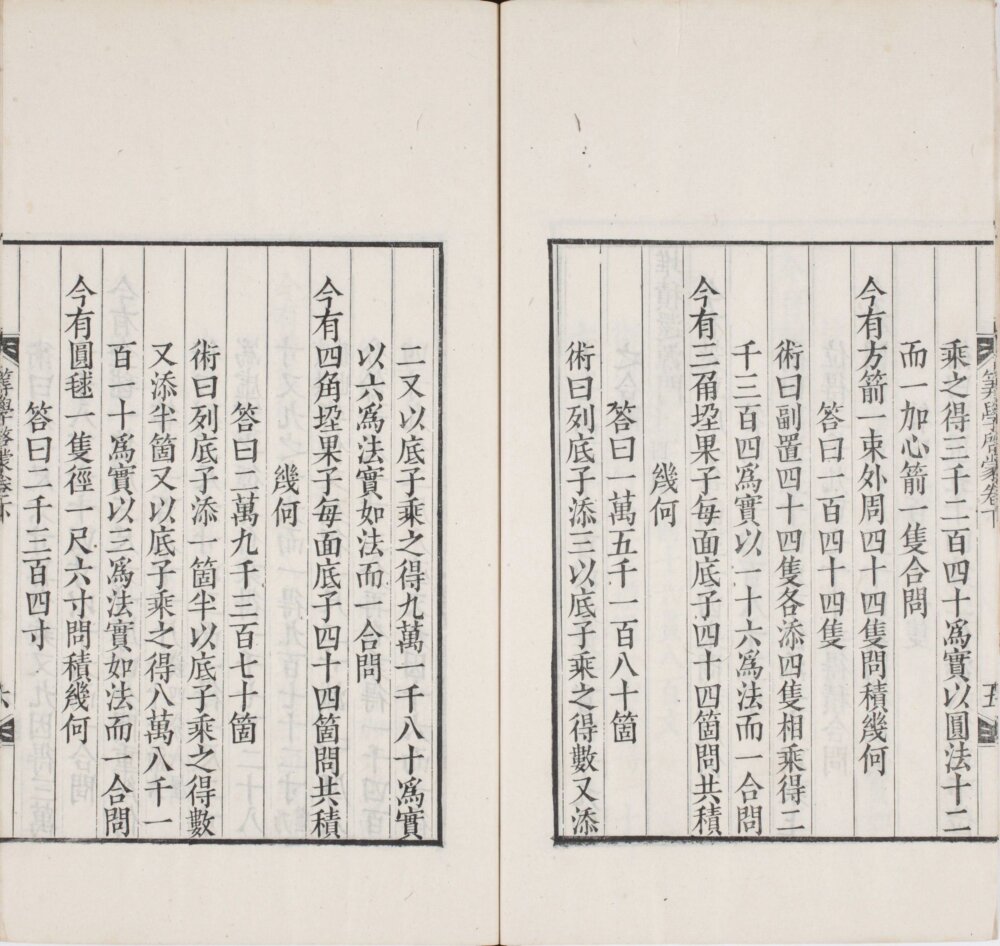 算學啓蒙卷下
五
乘之得三千二百四十爲實以圓法十二
而一加心箭一隻合問
今有方箭一束外周四十四隻問積幾何
答曰一百四十四隻
術曰副置四十四隻各添四隻相乘得二
千三百四爲實以一十六爲法而一合問
今有三角垜果子每面底子四十四箇問共積
幾何
答曰一萬五千一百八十箇
術曰列底子添三以底子乘之得數又添
二又以底子乘之得九萬一千八十爲實
以六爲法實如法而一合問
今有四角垜果子每面底子四十四箇問共積
幾何
答曰二萬九千三百七十箇
術曰列底子添一箇半以底子乘之得數
又添半箇又以底子乘之得八萬八千一
百一十爲實以三爲法實如法而一合問
今有圓毬一隻徑一尺六寸問積幾何
答曰二千三百四寸
算學啓蒙卷下
六